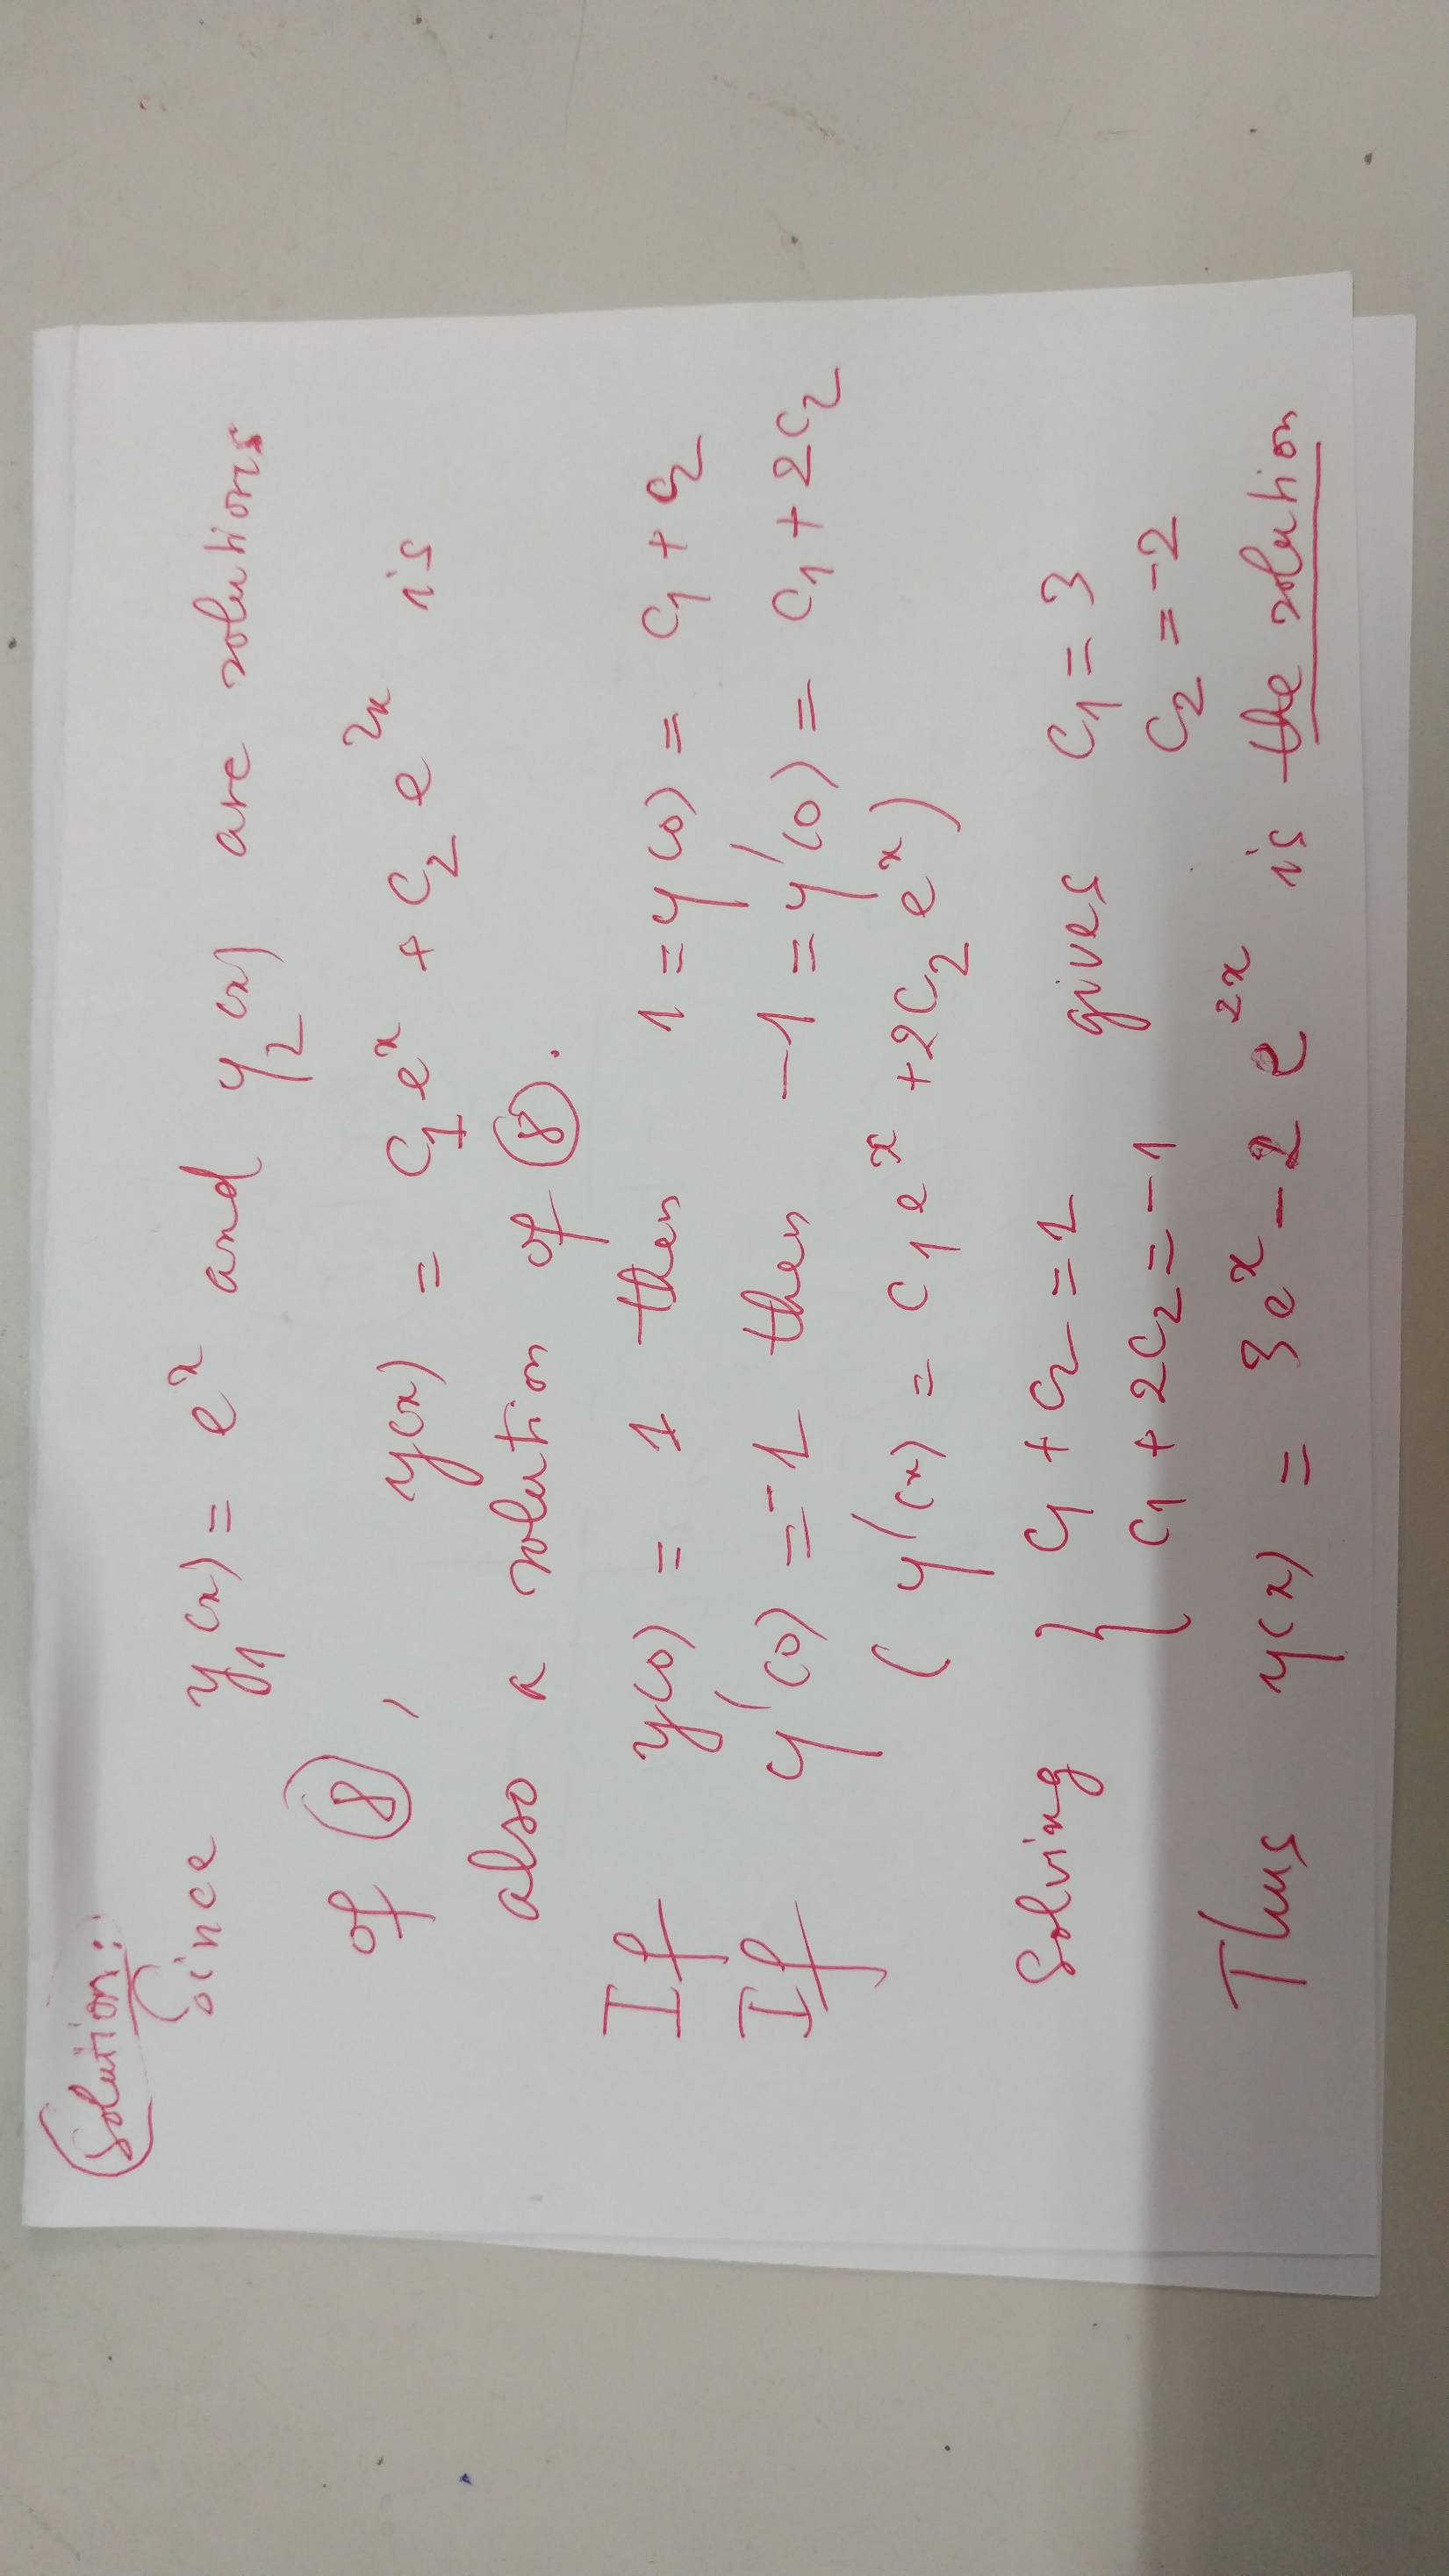 Solution:
Since y₁(x) = eˣ and y₂(x) are solutions
of ⑧, y(x) = c₁eˣ + c₂e²ˣ is
also a solution of ⑧.
If y(0) = 1 then 1 = y(0) = c₁ + c₂
If y'(0) = -1 then -1 = y'(0) = c₁ + 2c₂
( y'(x) = c₁eˣ + 2c₂eˣ )
Solving { c₁ + c₂ = 1 gives c₁ = 3
c₁ + 2c₂ = -1 c₂ = -2
Thus y(x) = 3eˣ - 2e²ˣ is the solution